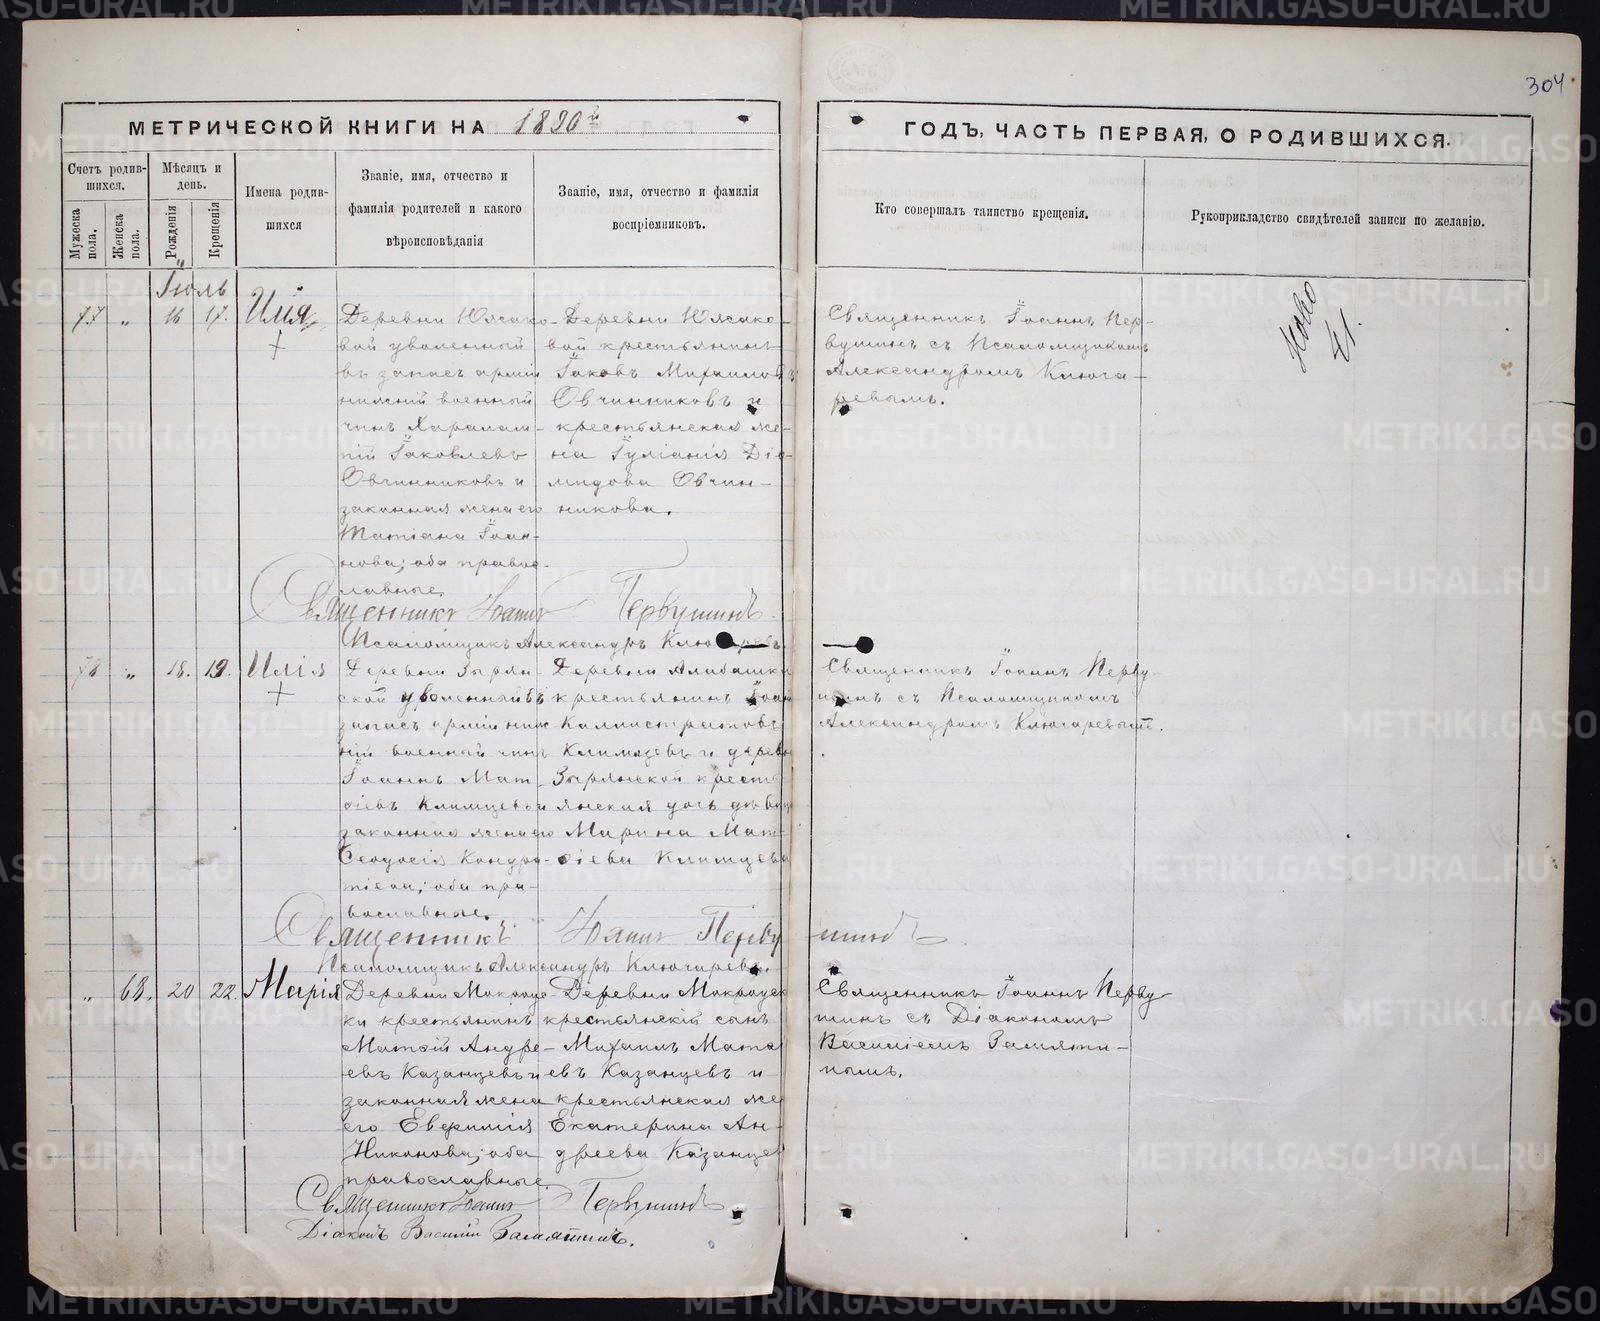 304
МЕТРИЧЕСКОЙ КНИГИ НА 1890й
ГОДЪ, ЧАСТЬ ПЕРВАЯ, О РОДИВШИХСЯ.
Счетъ родившихся.
Мужеска пола.
Женска пола.
Мѣсяцъ и день.
Рожденія
Крещенія
Имена родившихся
Званіе, имя, отчество и фамилія родителей и какого вѣроисповѣданія
Званіе, имя, отчество и фамилія воспріемниковъ.
Кто совершалъ таинство крещенія.
Рукоприкладство свидѣтелей записи по желанію.
Іюль
77 „ 16 17. Илія
Деревни Юсако-
вой уволенный
въ запасъ арміи
нижній военный
чинъ Харалам-
пій Іаковлевъ
Овчинниковъ и
законная жена его
Татіана Іоан-
нова; оба право-
славные.
Деревни Юсако-
вой крестьянинъ
Іаковъ Михаиловъ
Овчинниковъ и
крестьянская же-
на Іуліанія Діо-
мидова Овчин-
никова.
Священникъ Іоаннъ Пер-
вушинъ съ Псаломщикомъ
Александромъ Ключа-
ревымъ.
41.
Священникъ Іоаннъ Первушинъ
Псаломщикъ Александръ Ключаревъ
78 „ 18. 19. Илія
Деревни Зырян-
ской уволенный въ
запасъ арміи ниж
ній военный чинъ
Іоаннъ Мат-
ѳіевъ Климцевъ и
законная жена его
Ѳеодосія Кондра-
тіева; оба пра-
вославные.
крестьянинъ Іоан
Каллистратовъ
Климцевъ и дерев
Зырянской кресть
янская дочь дѣвиц
Марина Мат-
ѳіева Климцева
Священникъ Іоаннъ Перву
шинъ съ Псаломщикомъ
Александромъ Ключаревымъ.
Священникъ Іоаннъ Первушинъ
Псаломщикъ Александръ Ключаревъ.
„ 68. 20 22. Марія
ки крестьянинъ
Матѳій Андре-
евъ Казанцевъ и
законная жена
его Евфимія
Никонова; оба
православные.
крестьянскій сынъ
Михаилъ Матѳ
евъ Казанцевъ и
крестьянская же
Екатерина Ан-
дреева Казанцев
Священникъ Іоаннъ Перву
шинъ съ Діакономъ
Василіемъ Замяти-
нымъ.
Священникъ Іоаннъ Первушинъ
Діаконъ Василій Замятинъ.
METRIKI.GASO-URAL.RU